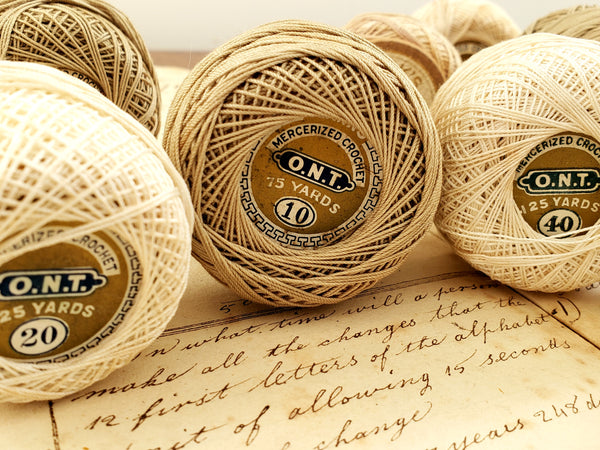 MERCERIZED CROCHET
O.N.T.
75 YARDS
10
MERCERIZED CROCHET
O.N.T.
125 YARDS
40
MERIZED CROCHET
O.N.T.
125 YARDS
20
5
In what time will a person
make all the changes that the
12 first letters of the alphabet
of allowing 15 seconds
change
years 248 d